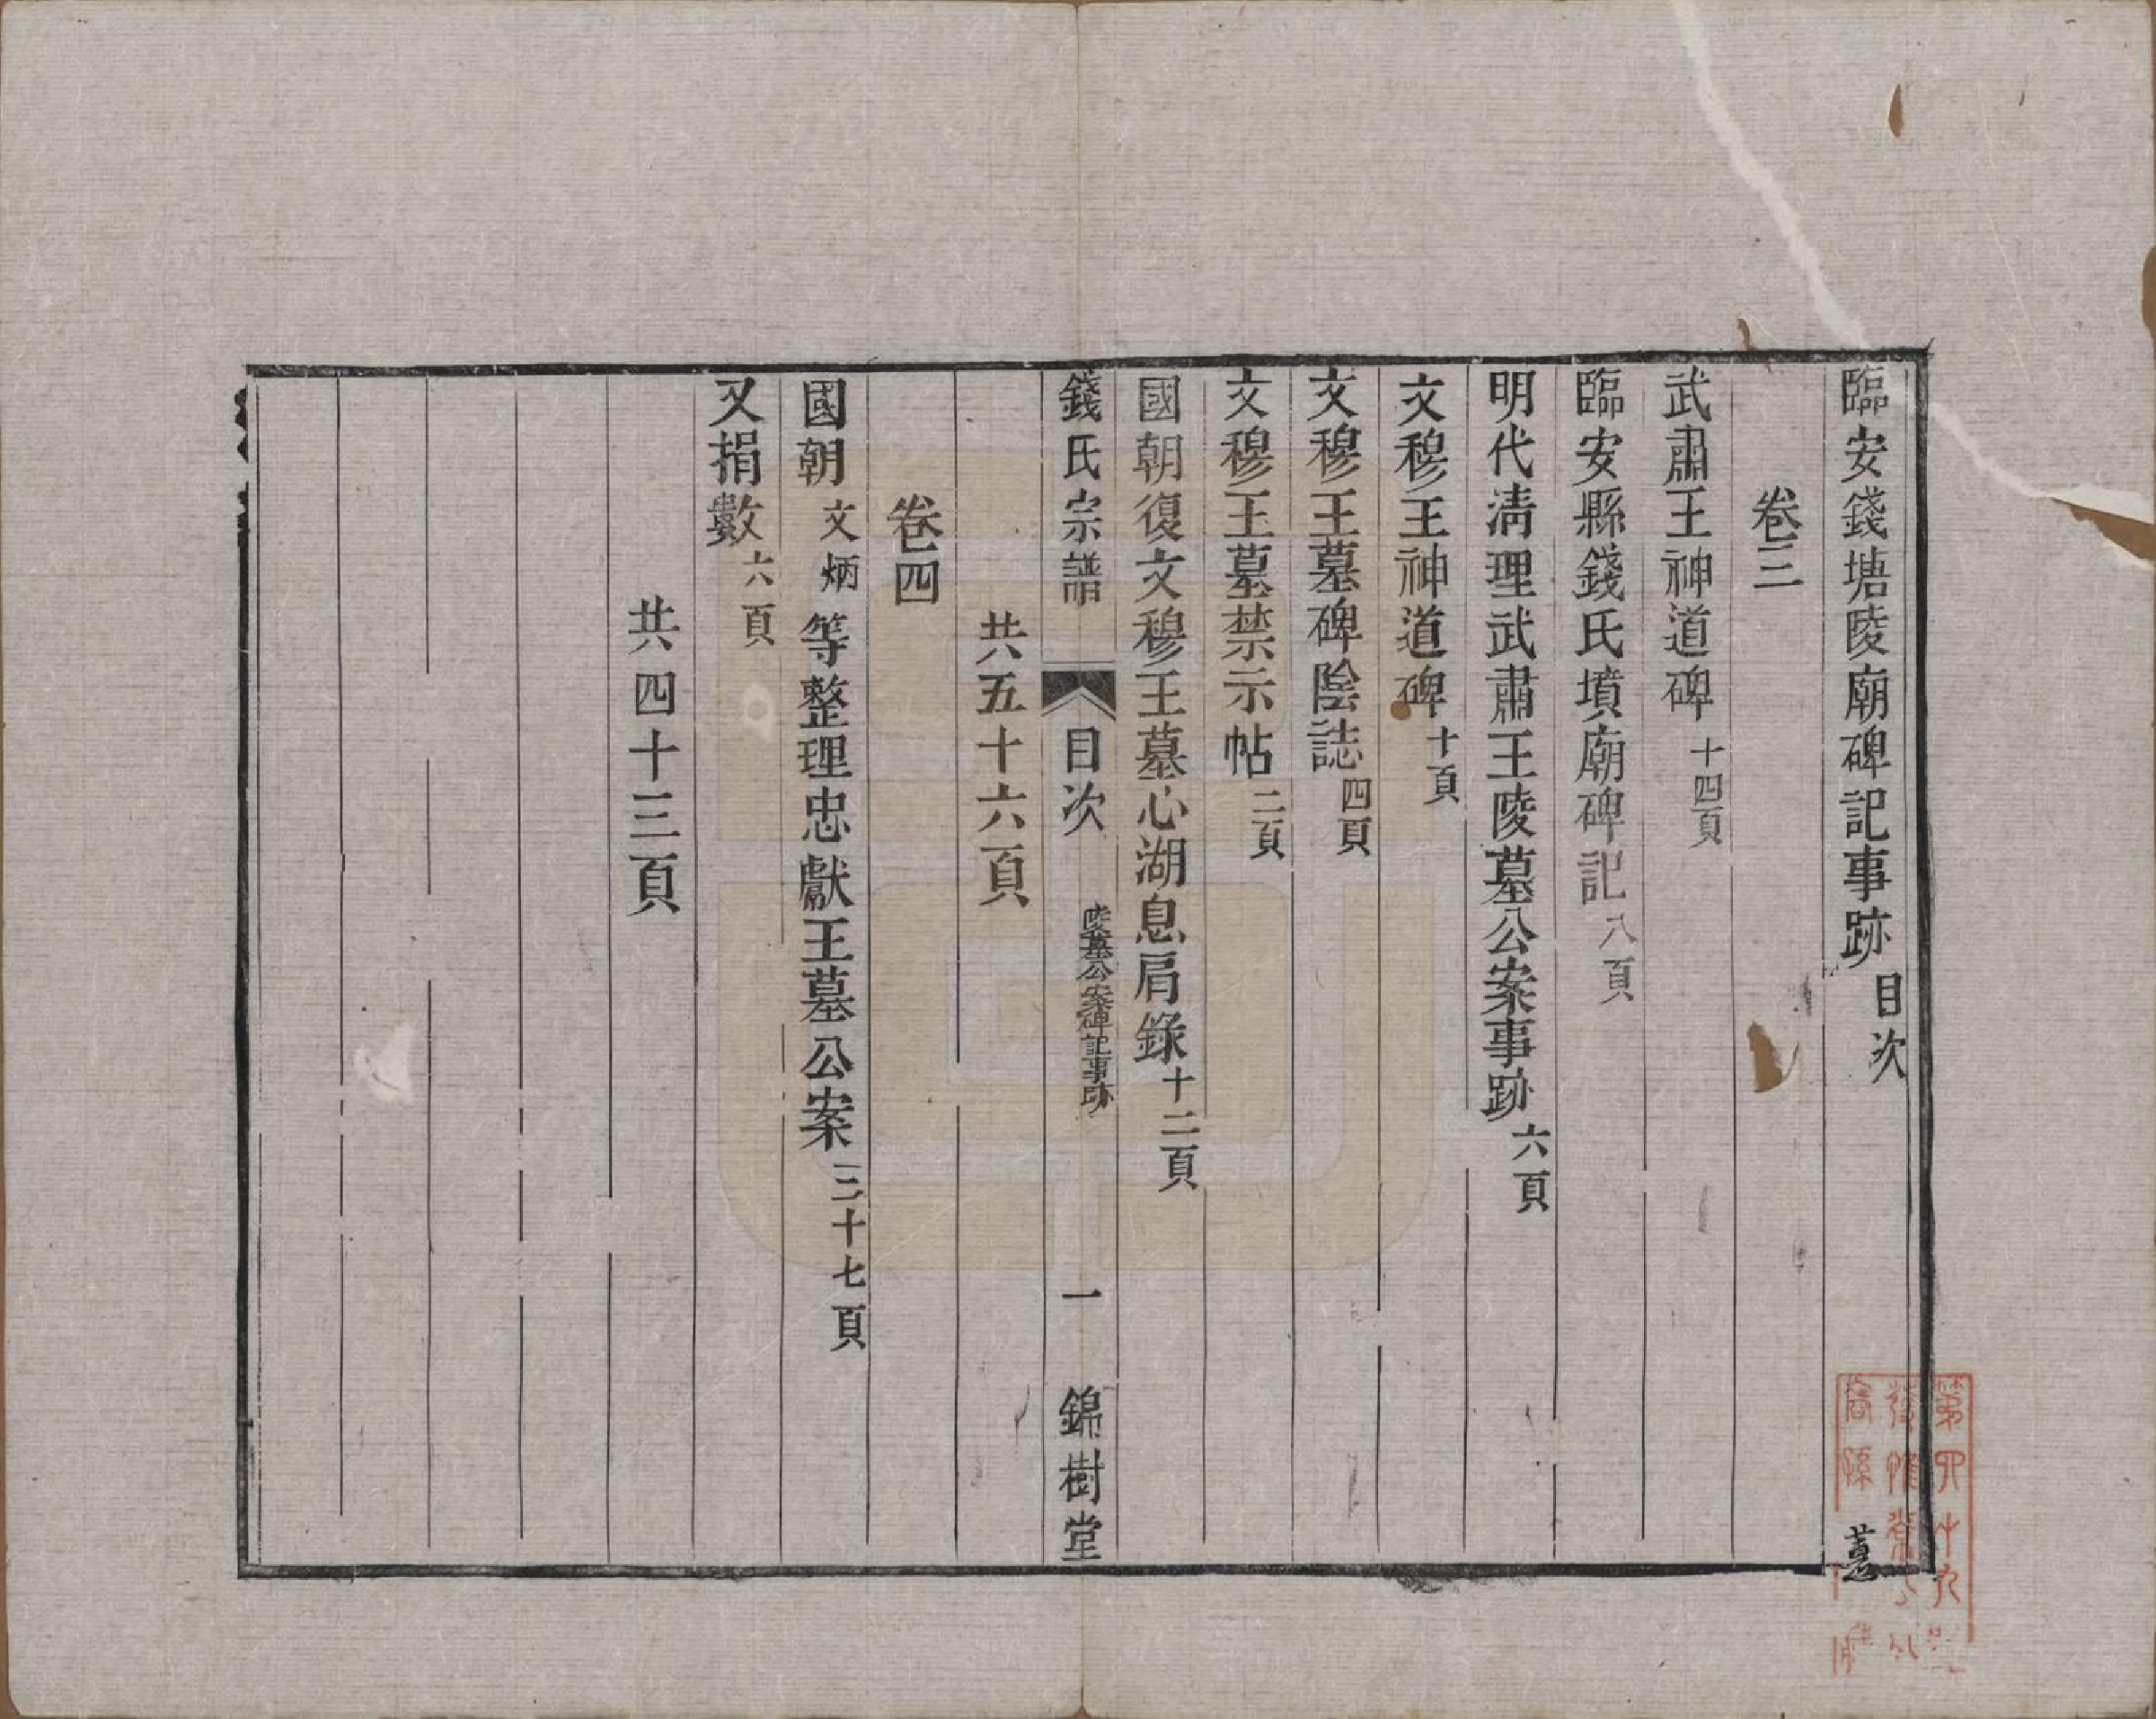 臨安錢塘陵廟碑記事跡目次
卷三
武肅王神道碑十四頁
臨安縣錢氏墳廟碑記八頁
明代清理武肅王陵墓公案事跡六頁
文穆王神道碑十頁
文穆王墓碑陰誌四頁
文穆王墓禁示帖二頁
國朝復文穆王墓心湖息肩錄十二頁
錢氏宗譜 目次 陵墓公案碑記事跡 一 錦樹堂
共五十六頁
卷四
國朝文炳等整理忠獻王墓公案三十七頁
又捐數六頁
共四十三頁